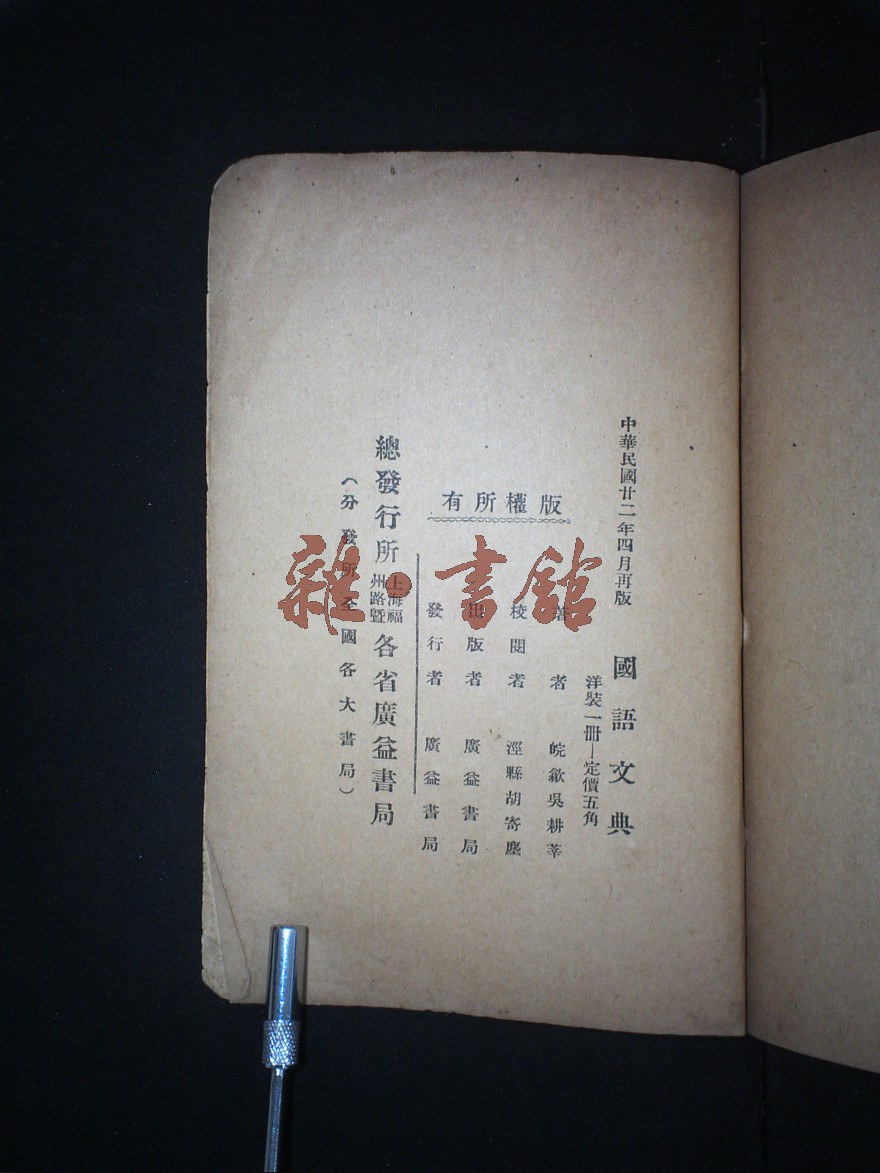 中華民國廿二年四月再版
國語文典
洋裝一冊—定價五角
版權所有
著者 皖歙吳耕莘
校閱者 涇縣胡寄塵
出版者 廣益書局
發行者 廣益書局
總發行所 上海福州路暨 各省廣益書局
（分發所全國各大書局）
雜·書館